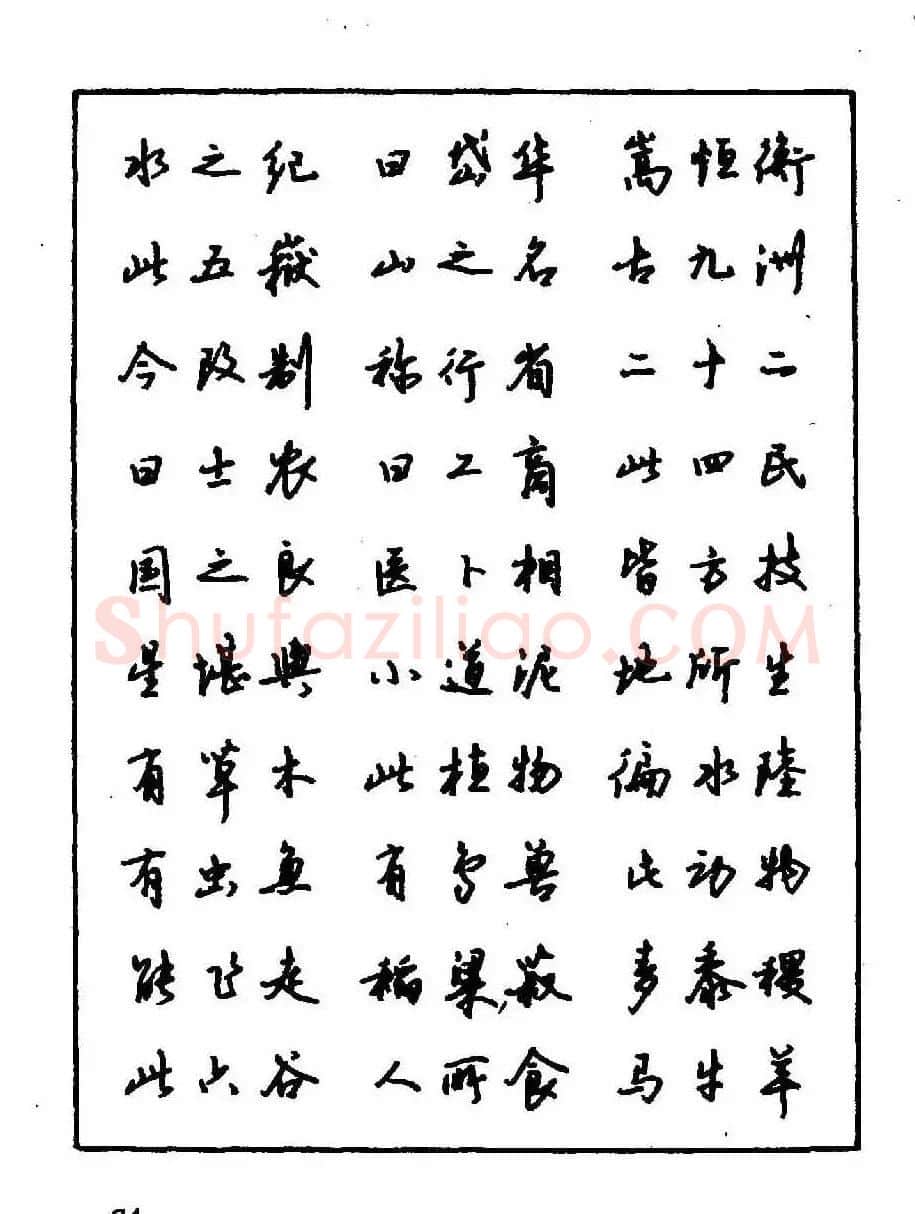 水之纪 曰岱华 嵩恒衡
此五嶽 山之名 古九洲
今改制 称行省 二十二
曰士农 曰工商 此四民
国之良 医卜相 皆方技
星堪舆 小道泥 地所生
有草木 此植物 偏水陸
有虫鱼 有鸟兽 此动物
能飞走 稻粱菽 麦黍稷
此六谷 人所食 马牛羊
Shufaziliao.COM